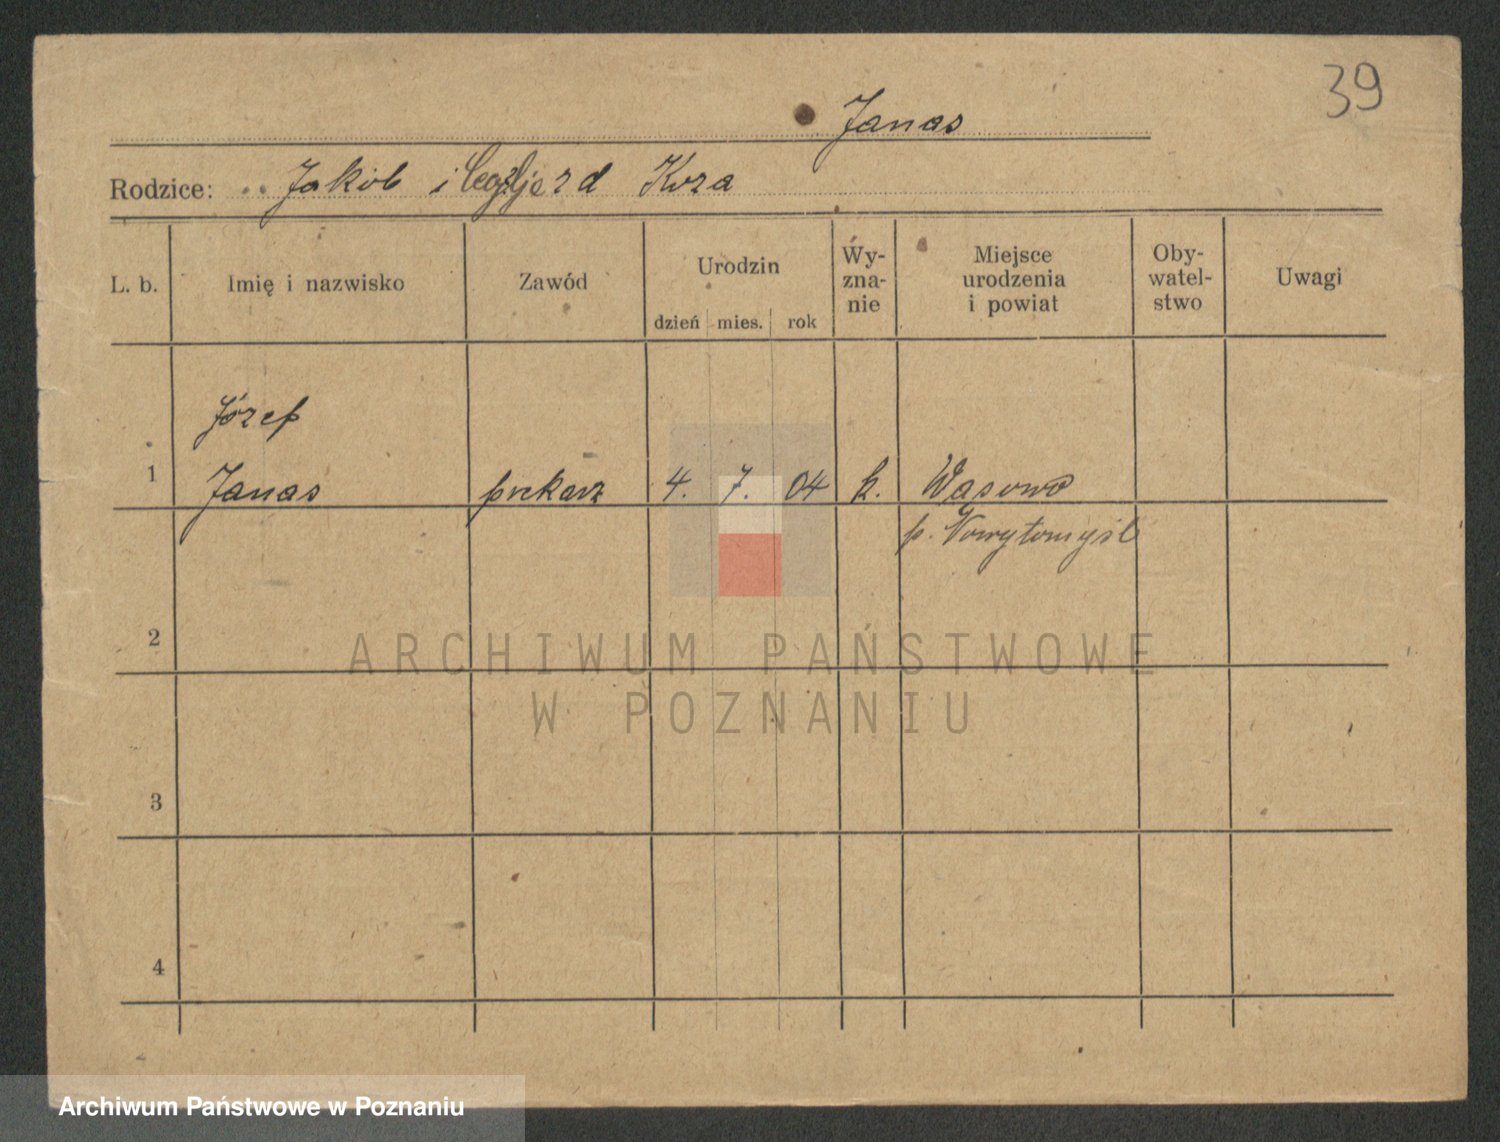 39
Janas
Rodzice: Jakób i Kora
L. b. Imię i nazwisko Zawód Urodzin dzień mies. rok Wy-zna-nie Miejsce urodzenia i powiat Oby-watel-stwo Uwagi
Józef
1 Janas piekarz 4. 7. 04 k. Wąsowo
p. Nowytomyśl
2
ARCHIWUM PAŃSTWOWE
W POZNANIU
3
4
Archiwum Państwowe w Poznaniu